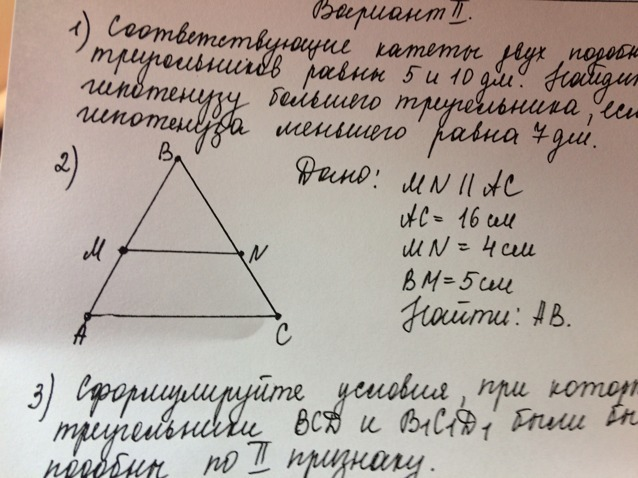 Вариант II.
1) Соответствующие катеты двух подобн
треугольников равны 5 и 10 дм. Найди
гипотенузу большего треугольника, есл
гипотенуза меньшего равна 7 дм.
2)
B
M
N
A
C
Дано: MN || AC
AC = 16 см
MN = 4 см
BM = 5 см
Найти: AB.
3) Сформулируйте условия, при котор
треугольники BCD и B₁C₁D₁ были бы
подобны по II признаку.